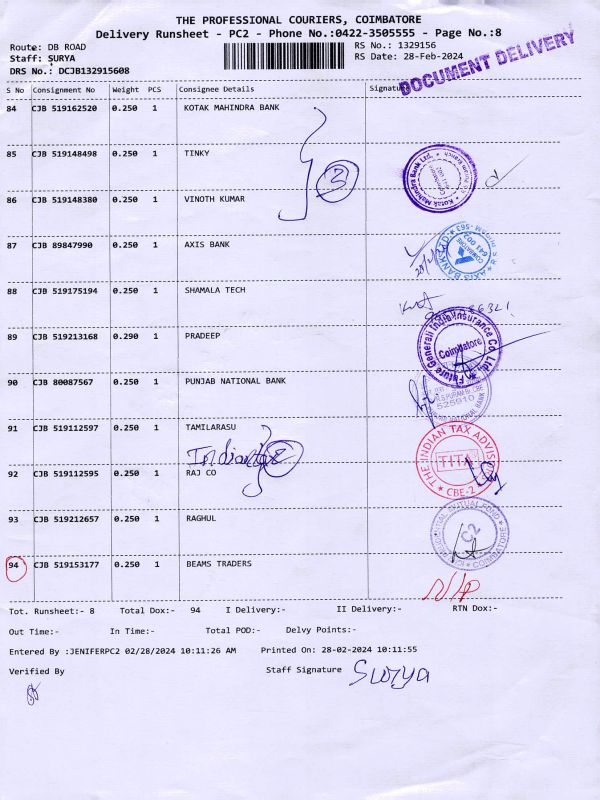 THE PROFESSIONAL COURIERS, COIMBATORE
Delivery Runsheet - PC2 - Phone No.:0422-3505555 - Page No.:8
Route: DB ROAD
RS No.: 1329156
Staff: SURYA
RS Date: 28-Feb-2024
DRS No.: DCJB132915608
DOCUMENT DELIVERY
S No Consignment No Weight PCS Consignee Details Signature
84 CJB 519162520 0.250 1 KOTAK MAHINDRA BANK
85 CJB 519148498 0.250 1 TINKY
3
Kotak Mahindra Bank Ltd.
86 CJB 519148380 0.250 1 VINOTH KUMAR
87 CJB 89847990 0.250 1 AXIS BANK
AXIS BANK LTD.
COIMBATORE
641 002
88 CJB 519175194 0.250 1 SHAMALA TECH
89 CJB 519213168 0.290 1 PRADEEP
Future Generali India Insurance Co. Ltd.
Coimbatore
90 CJB 80087567 0.250 1 PUNJAB NATIONAL BANK
525910
91 CJB 519112597 0.250 1 TAMILARASU
Indiantax 2
THE INDIAN TAX ADVISOR
TITA
CBE-2
92 CJB 519112595 0.250 1 RAJ CO
93 CJB 519212657 0.250 1 RAGHUL
MUTUAL FUND
C2
COIMBATORE
94 CJB 519153177 0.250 1 BEAMS TRADERS
N/P
Tot. Runsheet:- 8 Total Dox:- 94 I Delivery:- II Delivery:- RTN Dox:-
Out Time:- In Time:- Total POD:- Delvy Points:-
Entered By :JENIFERPC2 02/28/2024 10:11:26 AM Printed On: 28-02-2024 10:11:55
Verified By Staff Signature Surya